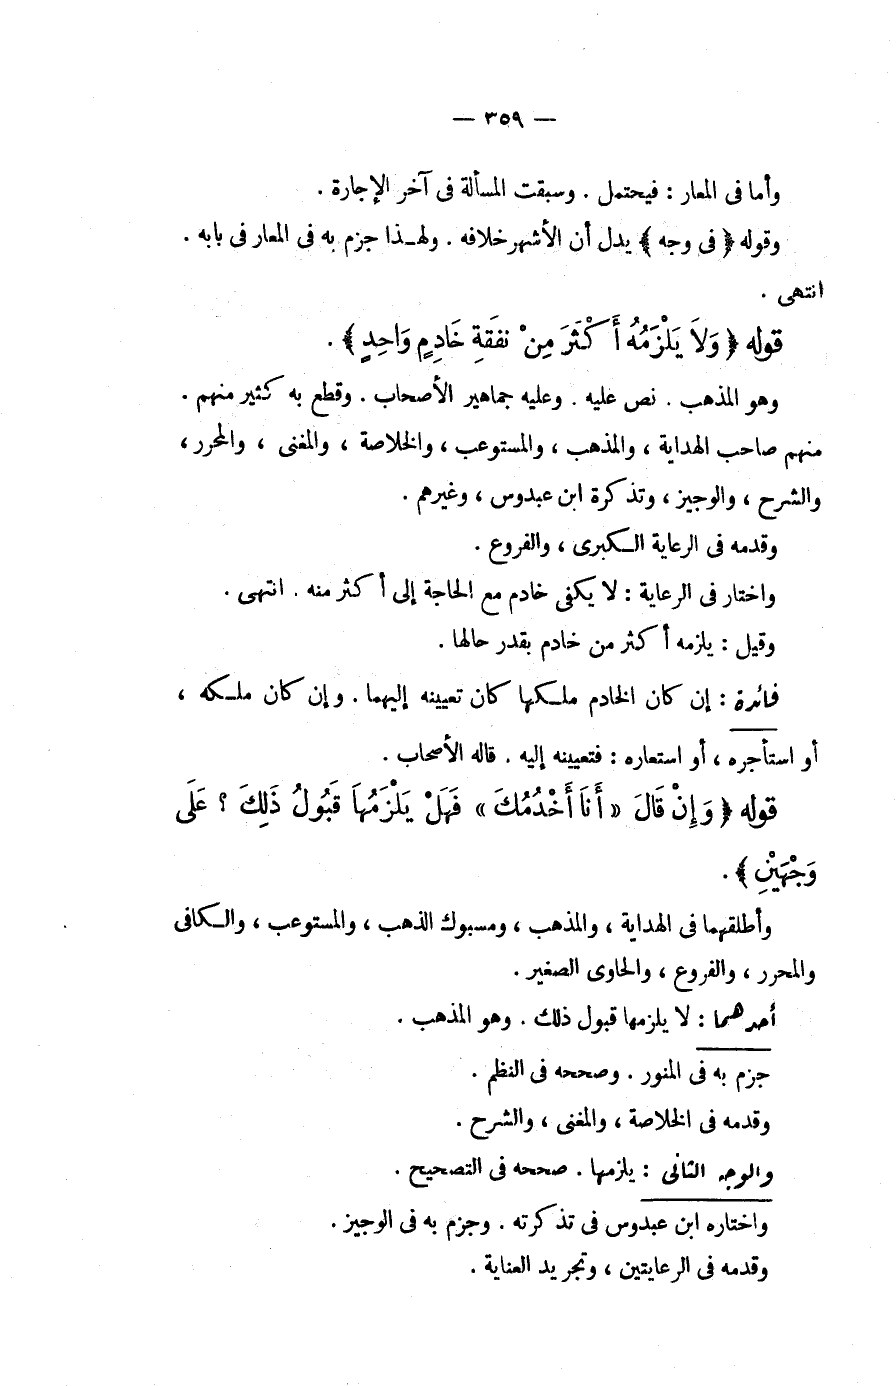 — ٣٥٩ —
وأما فى المعار : فيحتمل . وسبقت المسألة فى آخر الإجارة .
وقوله ﴿ فى وجه ﴾ يدل أن الأشهر خلافه . ولهـذا جزم به فى المعار فى بابه .
انتهى .
قوله ﴿ وَلَا يَلْزَمُهُ أَكْثَرَ مِنْ نفَقَةِ خَادِمٍ وَاحِدٍ ﴾ .
وهو المذهب . نص عليه . وعليه جماهير الأصحاب . وقطع به كثير منهم .
منهم صاحب الهداية ، والمذهب ، والمستوعب ، والخلاصة ، والمغنى ، والمحرر ،
والشرح ، والوجيز ، وتذكرة ابن عبدوس ، وغيرهم .
وقدمه فى الرعاية الـكبرى ، والفروع .
واختار فى الرعاية : لا يكفى خادم مع الحاجة إلى أكثر منه . انتهى .
وقيل : يلزمه أكثر من خادم بقدر حالها .
فائدة : إن كان الخادم ملـكها كان تعيينه إليهما . وإن كان ملـكه ،
أو استأجره ، أو استعاره : فتعيينه إليه . قاله الأصحاب .
قوله ﴿ وَإِنْ قَالَ « أَنَا أَخْدُمُكَ » فَهَلْ يَلْزَمُهَا قَبُولُ ذَلِكَ ؟ عَلَى
وَجْهَيْنِ ﴾ .
وأطلقهما فى الهداية ، والمذهب ، ومسبوك الذهب ، والمستوعب ، والـكافى
والمحرر ، والفروع ، والحاوى الصغير .
أحدهما : لا يلزمها قبول ذلك . وهو المذهب .
جزم به فى المنور . وصححه فى النظم .
وقدمه فى الخلاصة ، والمغنى ، والشرح .
والوجه الثانى : يلزمها . صححه فى التصحيح .
واختاره ابن عبدوس فى تذكرته . وجزم به فى الوجيز .
وقدمه فى الرعايتين ، وتجريد العناية .